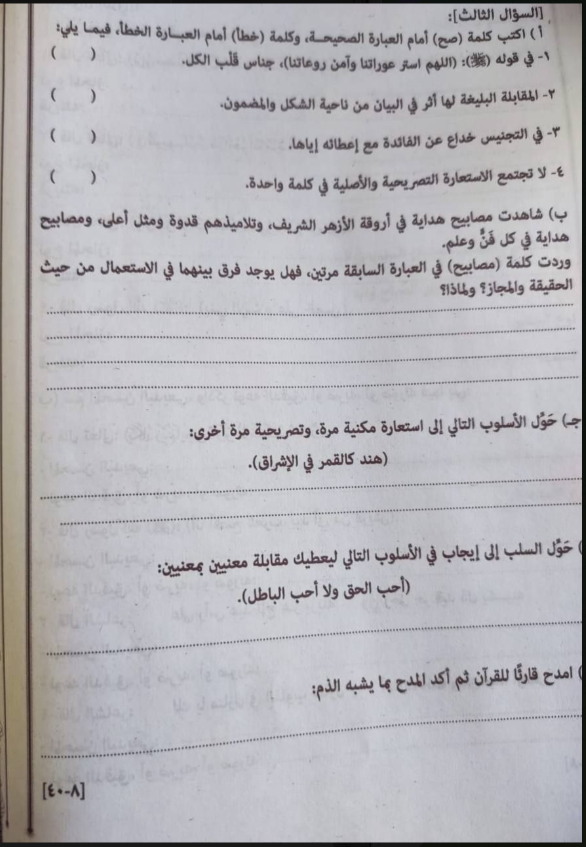 [السؤال الثالث]:
أ) اكتب كلمة (صح) أمام العبارة الصحيحة، وكلمة (خطأ) أمام العبارة الخطأ، فيما يلي:
١- في قوله (ﷺ): (اللهم استر عوراتنا وآمن روعاتنا)، جناس قَلْب الكل. ( )
٢- المقابلة البليغة لها أثر في البيان من ناحية الشكل والمضمون. ( )
٣- في التجنيس خداع عن الفائدة مع إعطائه إياها. ( )
٤- لا تجتمع الاستعارة التصريحية والأصلية في كلمة واحدة. ( )
ب) شاهدت مصابيح هداية في أروقة الأزهر الشريف، وتلاميذهم قدوة ومثل أعلى، ومصابيح
هداية في كل فَنٍّ وعلم.
وردت كلمة (مصابيح) في العبارة السابقة مرتين، فهل يوجد فرق بينهما في الاستعمال من حيث
الحقيقة والمجاز؟ ولماذا؟
جـ) حَوِّل الأسلوب التالي إلى استعارة مكنية مرة، وتصريحية مرة أخرى:
(هند كالقمر في الإشراق).
) حَوِّل السلب إلى إيجاب في الأسلوب التالي ليعطيك مقابلة معنيين بمعنيين:
(أحب الحق ولا أحب الباطل).
) امدح قارئًا للقرآن ثم أكد المدح بما يشبه الذم:
[٨-٤٠]